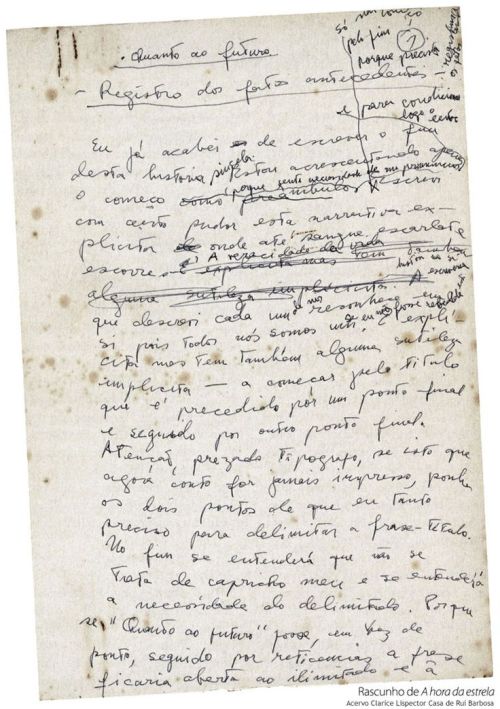 só
pelo fim
porque preciso
1
. Quanto ao futuro.
- Registro dos fatos antecedentes -
e para condicionar
logo o
Eu já acabei de escrever o fim
desta história singela estou acrescentando apenas
o começo como preâmbulo. Escrevi
porque senti necessidade de
com certo pudor esta narrativa ex-
plícita de onde até sangue escarlate
escorre A veracidade da vida
explícita mas tem também
alguma sutileza implícita. A
que descrevi cada um se reconhece em
si pois todos nós somos um é explí-
cita mas tem também alguma sutileza
implícita — a começar pelo título
que é precedido por um ponto final
e seguido por outro ponto final.
Atenção, prezado tipógrafo, se isto que
agora conto for jamais impresso, ponha
os dois pontos de que eu tanto
preciso para delimitar a frase-título.
No fim se entenderá que não se
trata de capricho meu e se entenderá
a necessidade do delimitado. Porque
se "Quanto ao futuro" fosse, em vez de
ponto, seguido por reticências a frase
ficaria aberta ao ilimitado e à
Rascunho de A hora da estrela
Acervo Clarice Lispector Casa de Rui Barbosa